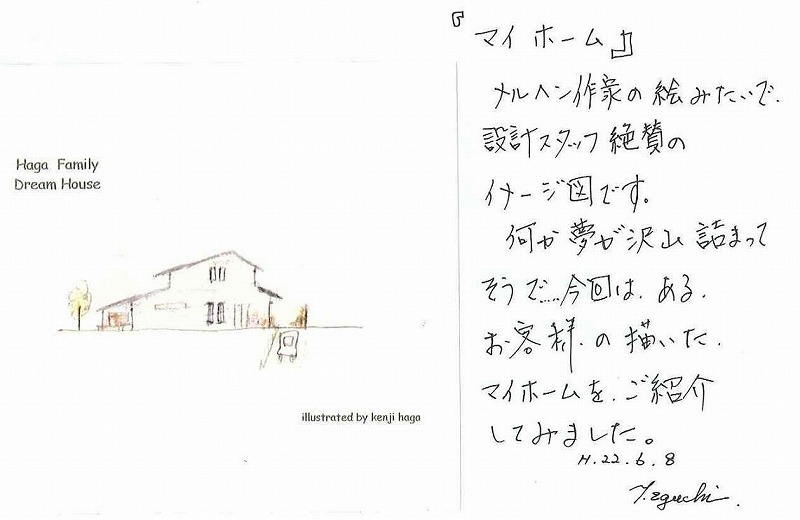 Haga Family
Dream House
illustrated by kenji haga
『マイ ホーム』
メルヘン作家の絵みたいで.
設計スタッフ絶賛の
イメージ図です。
何か夢が沢山詰まって
そうで.....今回は.ある.
お客様.の描いた.
マイホームを.ご紹介
してみました。
H.22.6.8
Y.eguchi.